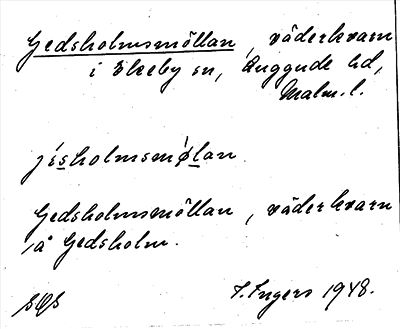 Gedsholmsmöllan, väderkvarn
i Ekeby sn, Luggude hd,
Malm. l.
jísholmsmǿlan.
Gedsholmsmöllan, väderkvarn
å Gedsholm.
I. Ingers 1948.